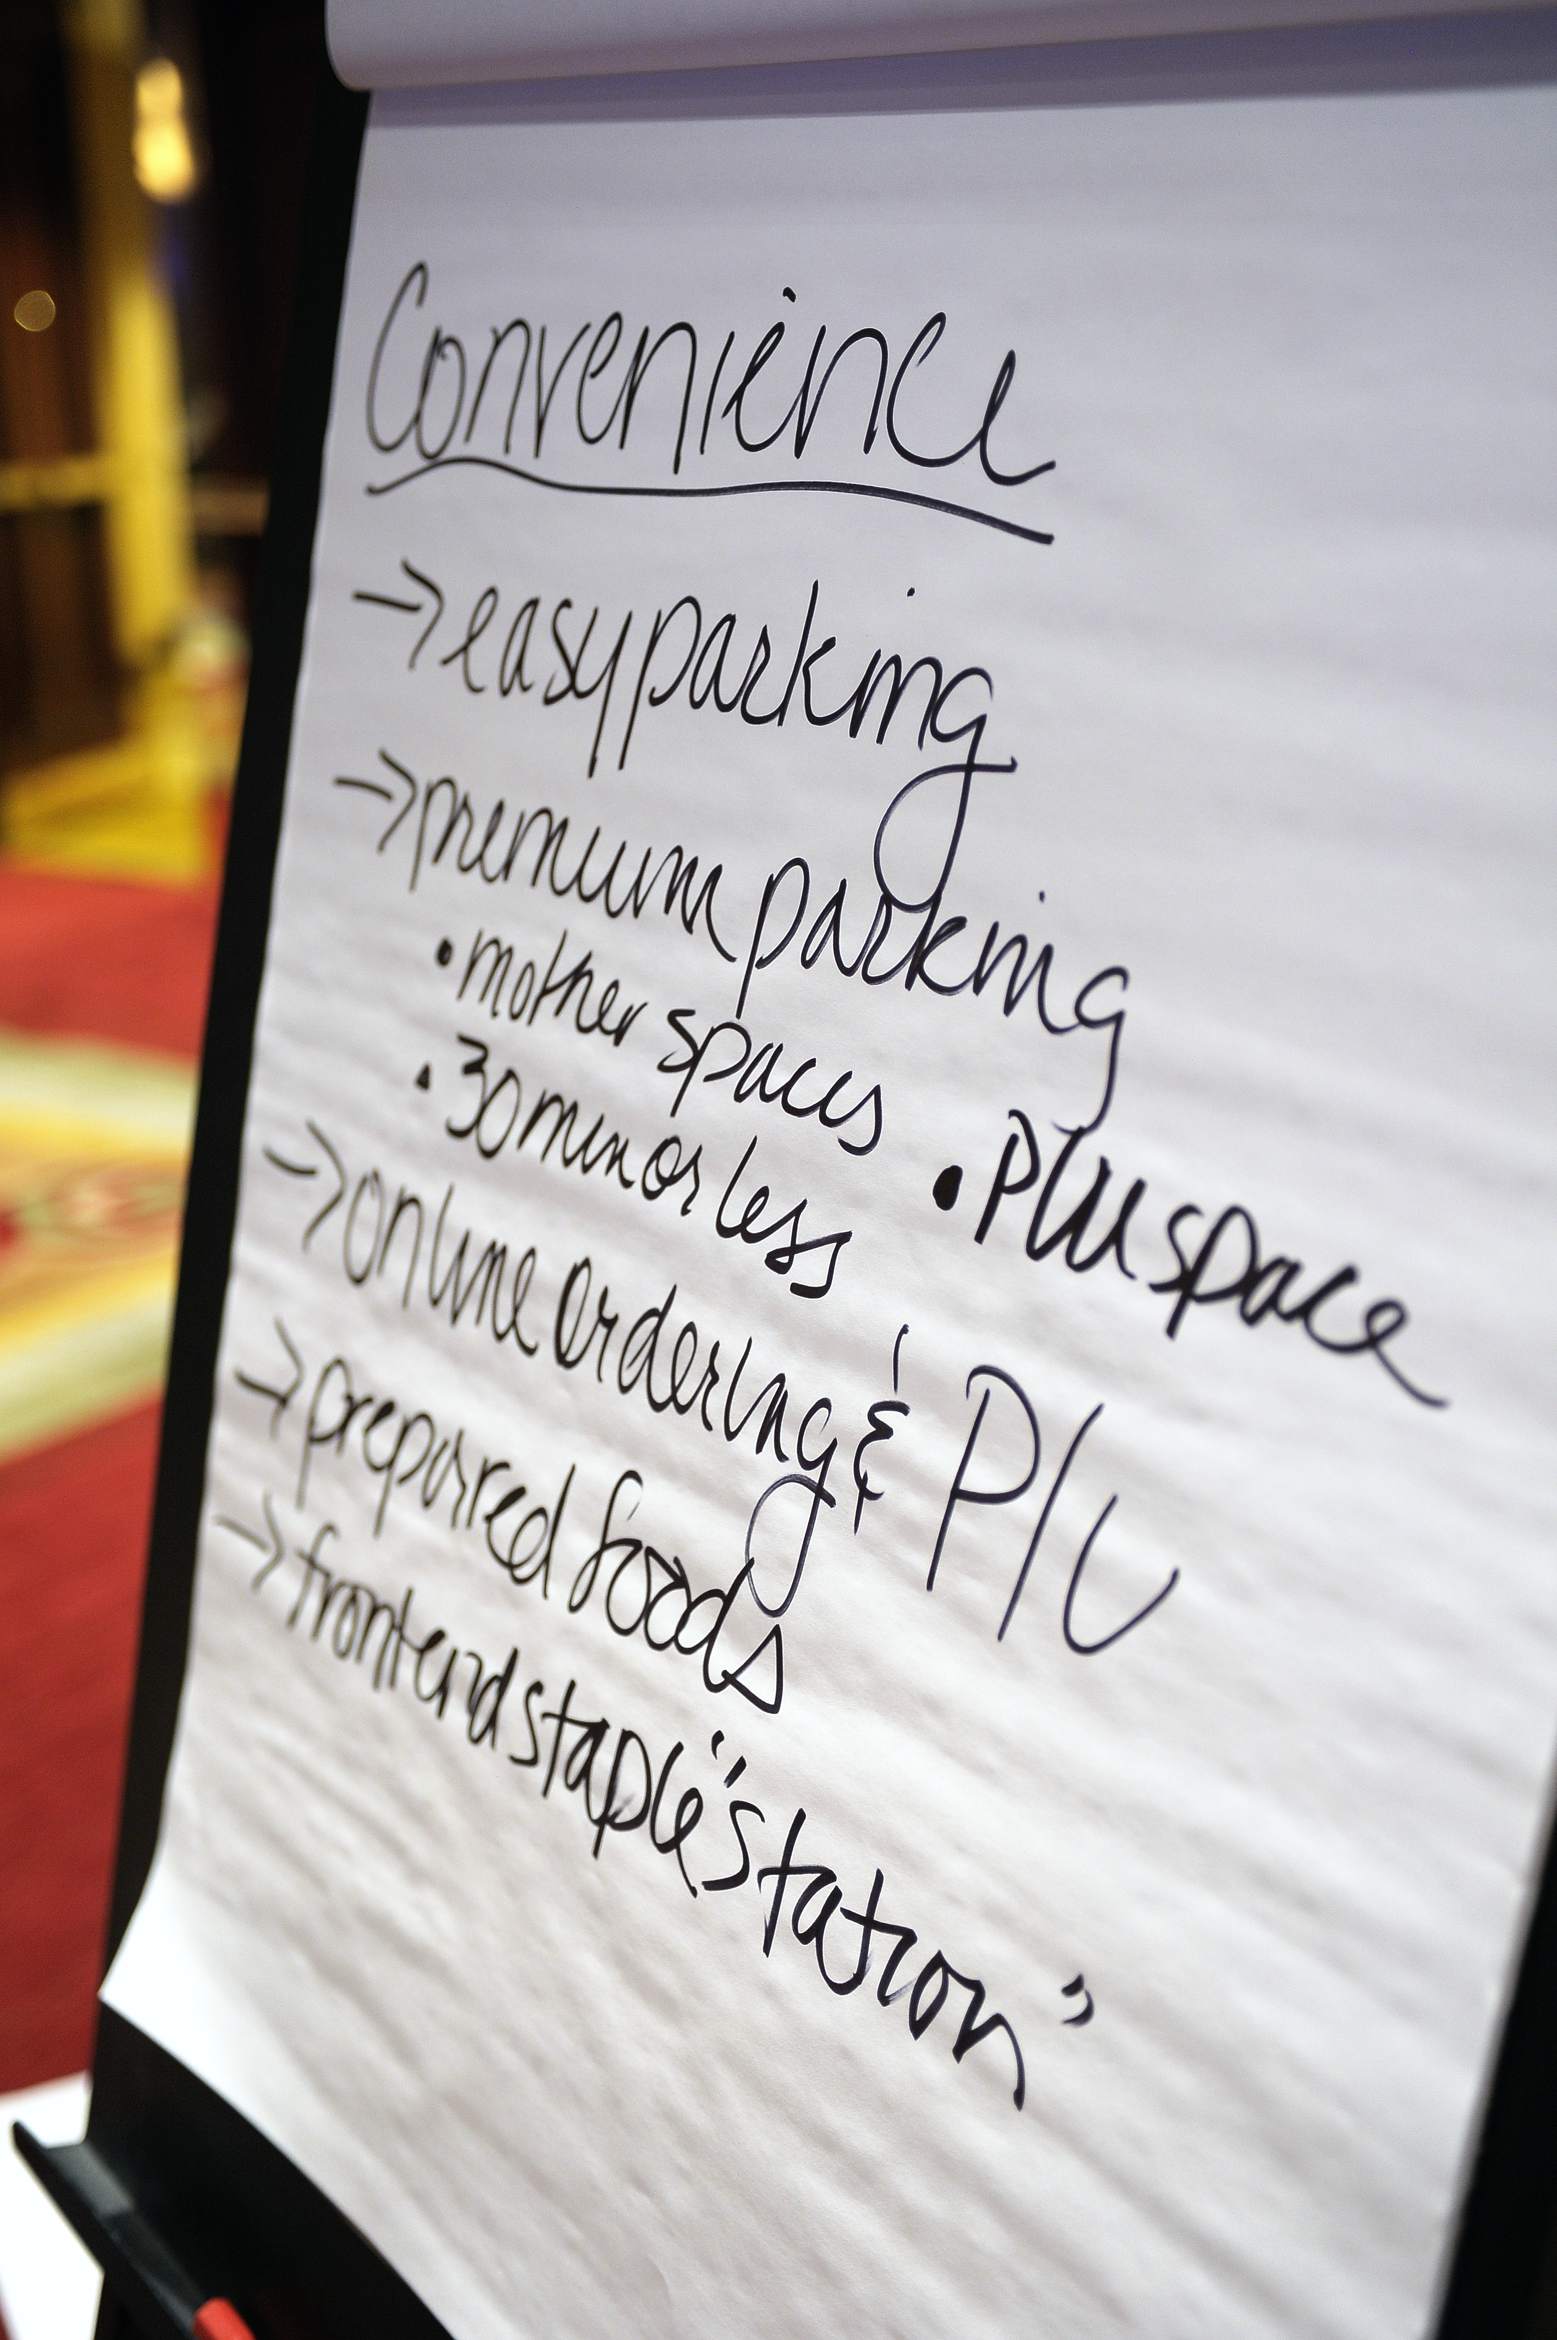 Convenience
→ easy parking
→ premium parking
• mother spaces
• 30 min or less
• PIU space
→ online ordering & PIU
→ preparred foods
→ front end staple "station"